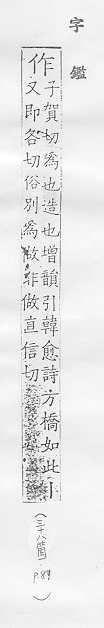 字鑑
作
子賀切爲也造也增韻引韓愈詩方橋如此
又即各切俗別爲做非做直信切
（三十八箇 p.84）